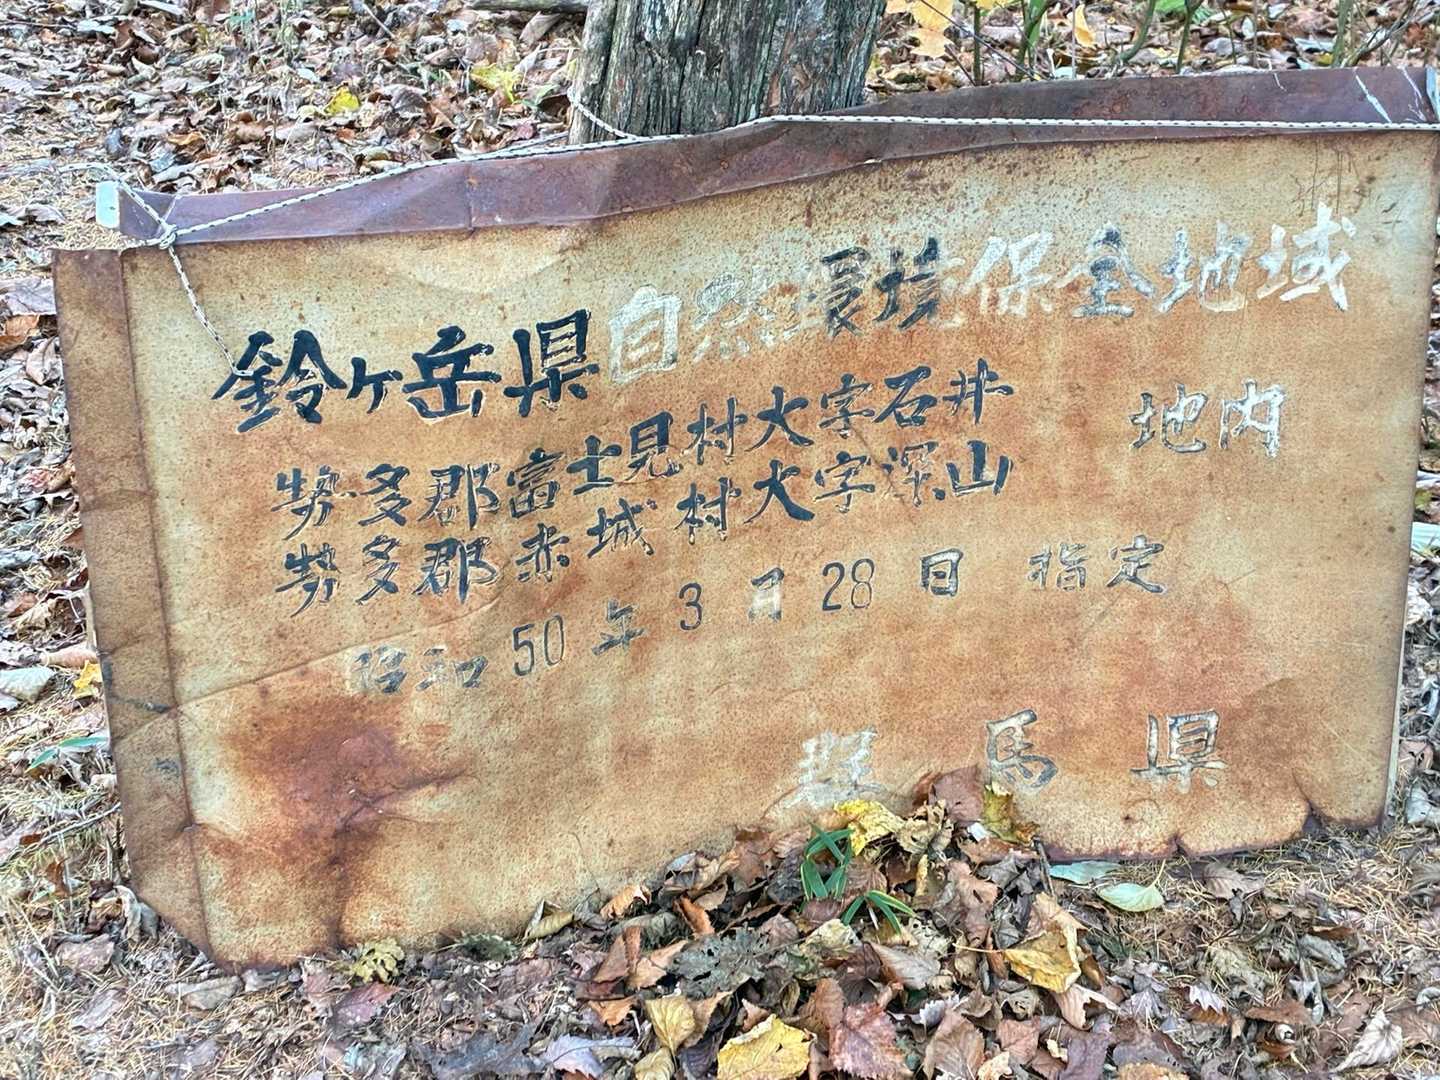 鈴ヶ岳県自然環境保全地域
勢多郡富士見村大字石井
勢多郡赤城村大字深山
地内
昭和50年3月28日 指定
群馬県